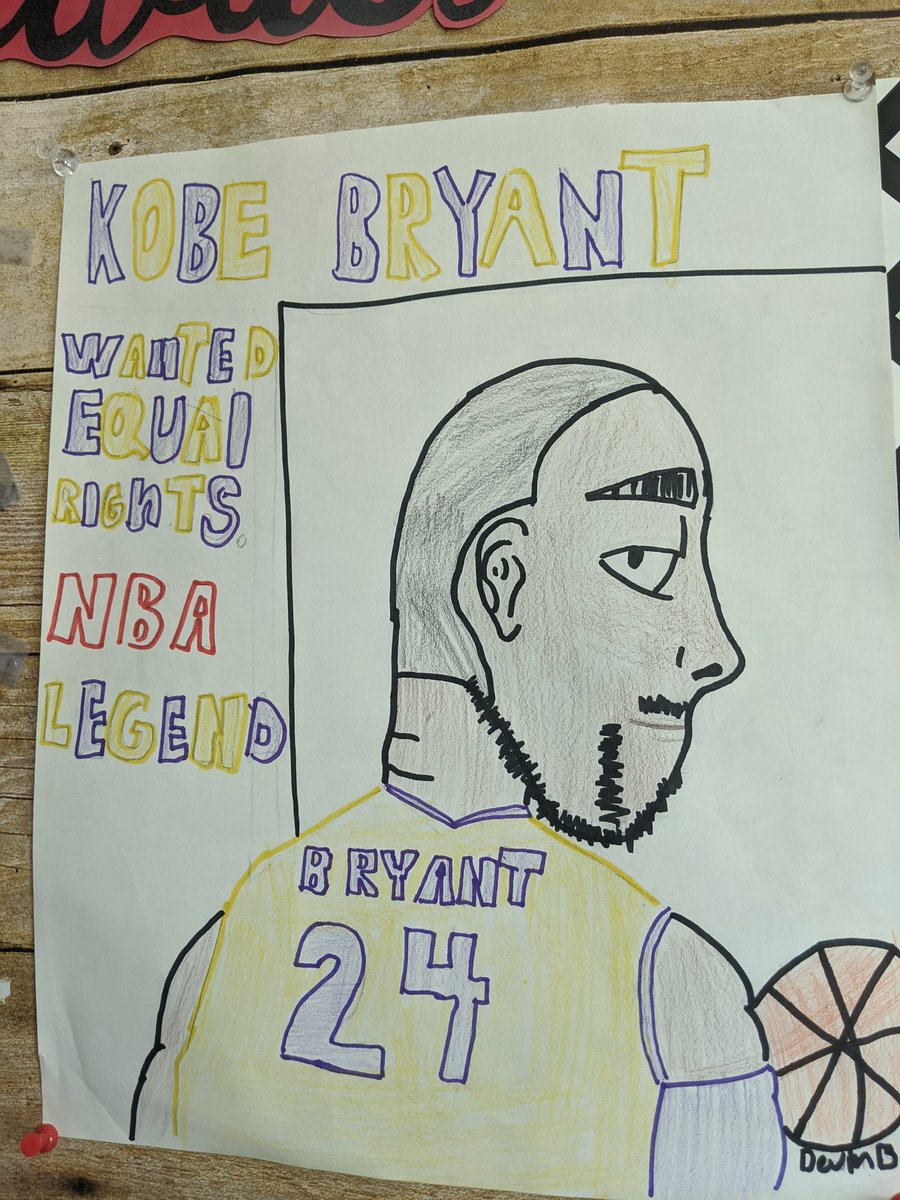 KOBE BRYANT
WANTED
EQUAl
RIGHTS.
NBA
LEGEND
BRYANT
24
Devin B